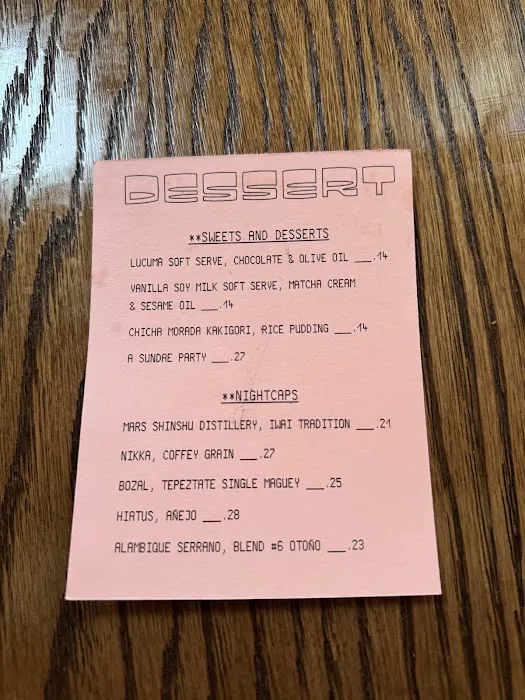 DESSERT
**SWEETS AND DESSERTS
LUCUMA SOFT SERVE, CHOCOLATE & OLIVE OIL ___.14
VANILLA SOY MILK SOFT SERVE, MATCHA CREAM
& SESAME OIL ___.14
CHICHA MORADA KAKIGORI, RICE PUDDING ___.14
A SUNDAE PARTY ___.27
**NIGHTCAPS
MARS SHINSHU DISTILLERY, IWAI TRADITION ___.21
NIKKA, COFFEY GRAIN ___.27
BOZAL, TEPEZTATE SINGLE MAGUEY ___.25
HIATUS, AÑEJO ___.28
ALAMBIQUE SERRANO, BLEND #6 OTOÑO ___.23